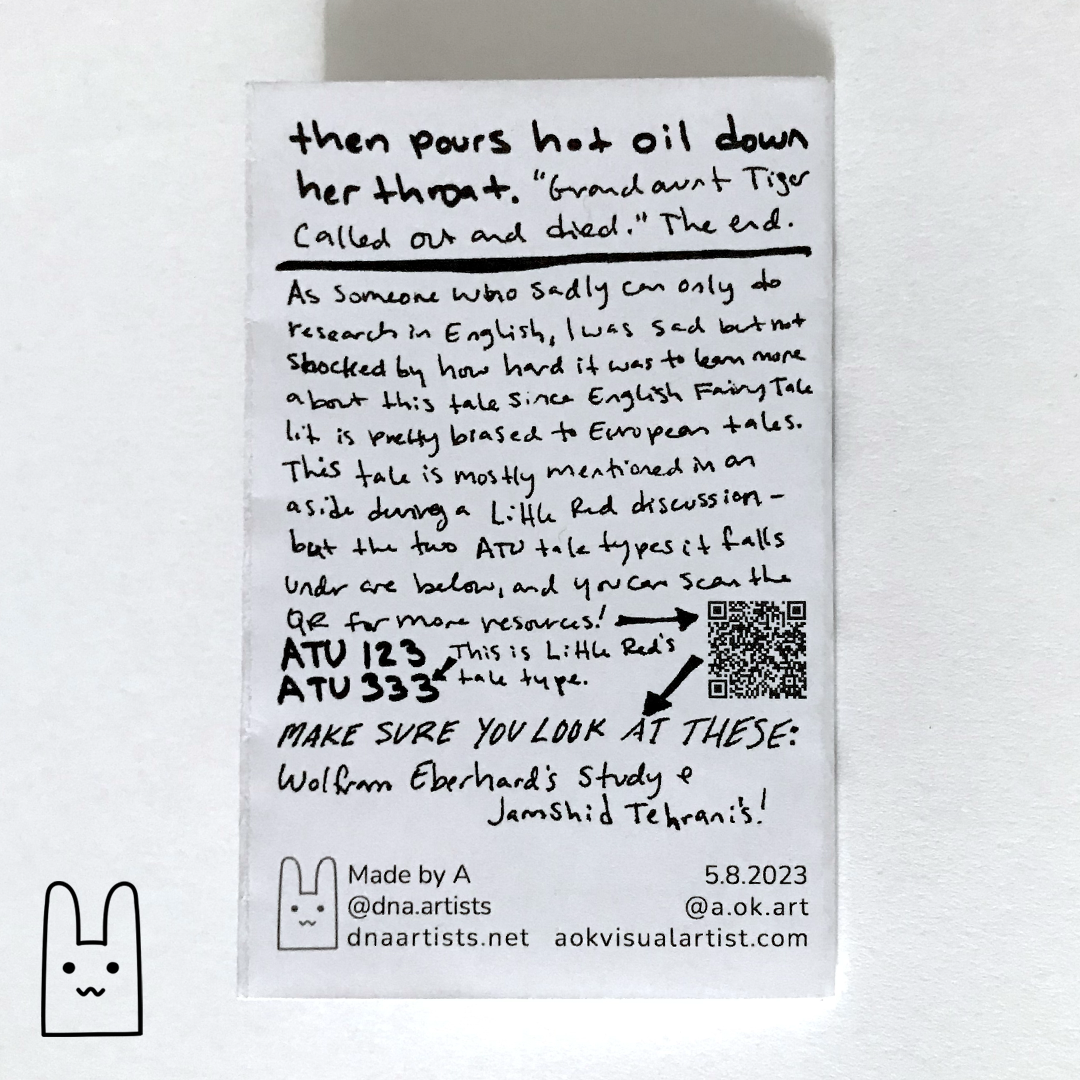 then pours hot oil down
her throat. "Grandaunt Tiger
Called out and died." The end.
As someone who sadly can only do
research in English, I was sad but not
shocked by how hard it was to learn more
about this tale since English Fairy Tale
lit is pretty biased to European tales.
This tale is mostly mentioned in an
aside during a Little Red discussion -
but the two ATU tale types it falls
undr are below, and you can scan the
QR for more resources!
ATU 123
This is Little Red's
tale type.
ATU 333
MAKE SURE YOU LOOK AT THESE:
Wolfram Eberhard's Study &
Jamshid Tehrani's!
Made by A
@dna.artists
dnaartists.net
5.8.2023
@a.ok.art
aokvisualartist.com